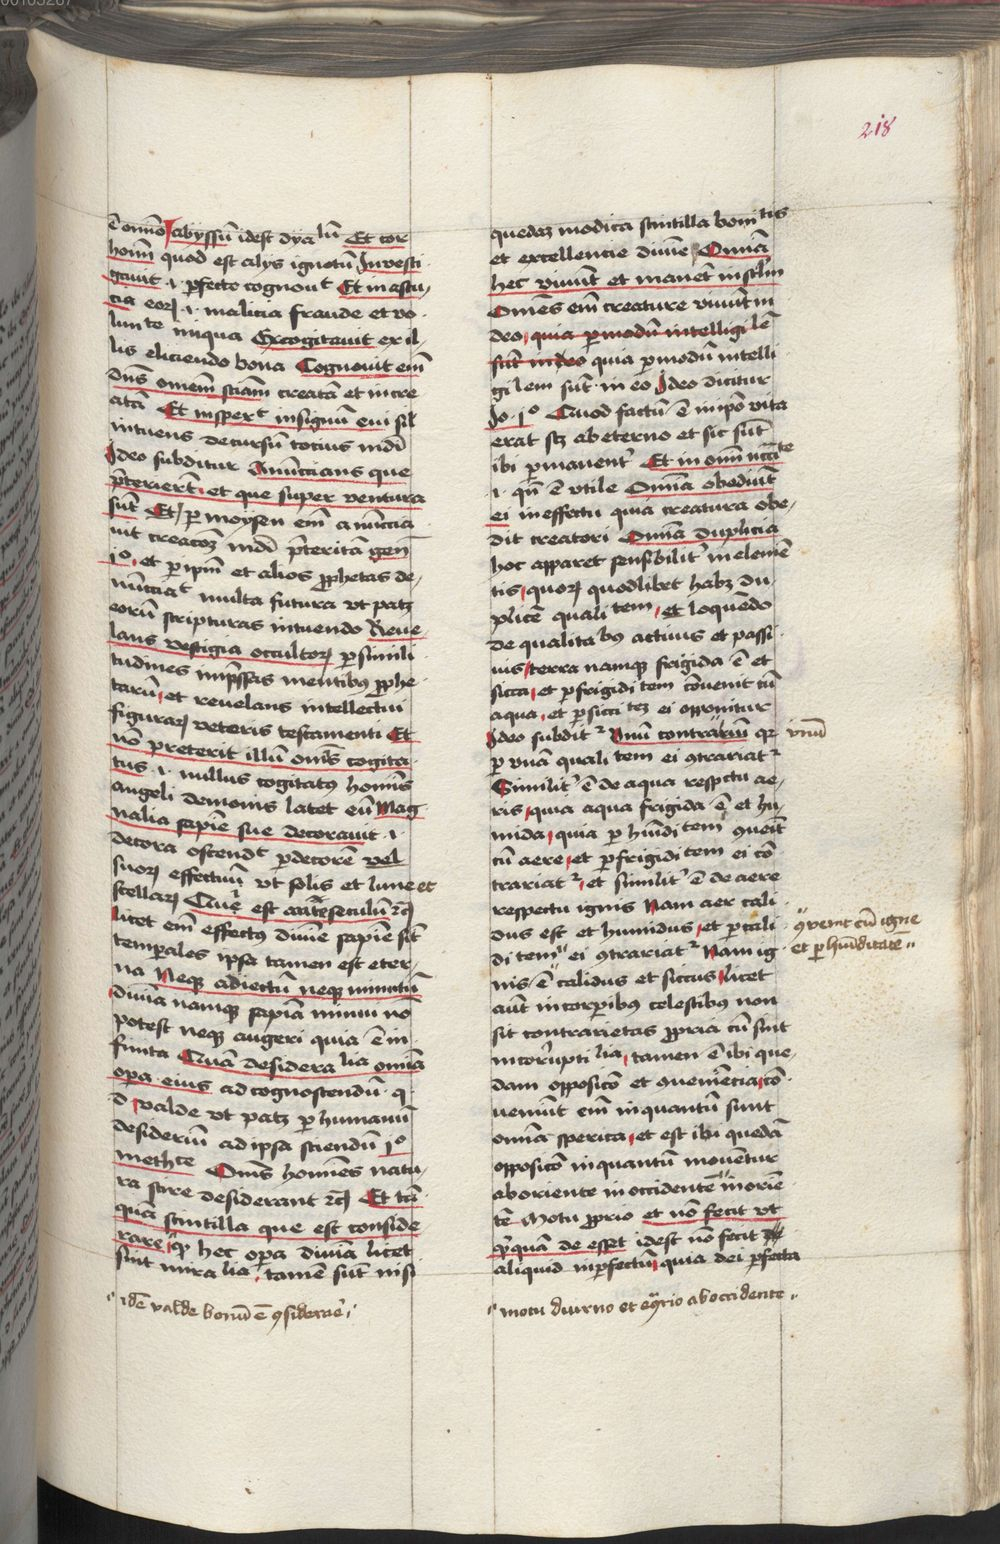 218
ē om̄o abyssū idest dyalū Et cor
hoīm quod est alys ignotū Investi
gavit .i. pfecte cognovit Et in astu
cia eorꝫ .i. malicia fraude et vo
luntate iniqua Excogitavit ex il
lis eliciendo bona Cognovit em̄
dn̄s omem̄ sciam̄ creatā et incre
atā Et inspexit in signū evi sil
intuens decursū totius mdī
Ideo subditur Annūcians que
p̄terierūt et que super ventura
sūt Et per moysen em̄ annūcia
vit creacoꝫ mdī p̄teritā gen̄
1º et per ipm̄ et alios p̄phetas de
nūnciat multa futura vt patꝫ
eorū scripturas intuendo Reve
lans vestigia occultorꝫ per simili
tudines imp̄ssas mentibꝰ p̄phe
tarū et revelans intellectum
figurarꝫ veteris testamenti Et
nō preterit illū om̄is cogita
tus .i. nullus cogitatꝰ hominis
angeli demonis latet eū Mag
nalia sapiē sue decoravit .i.
decora ostendit p decorē vel
suorꝫ effectuū vt solis et lune et
stellarꝫ Que est ante seculū
licet em̄ effectꝰ divine sapiē sūt
temporales ipsa tamen est eter
na Neqꝫ adiectū neqꝫ minutū
divina namqꝫ sapīa minui nō
potest neqꝫ augeri quia ē in
finita Quā desiderabilia om̄ia
opera eius ad cognoscendū q
d valde vt patꝫ p humanū
desideriū ad ipsa sciendū 1º
methce Om̄s homines natu
ra scire desiderant Et tā
quā scintilla que est conside
rare qꝫ hec opera divina licet
sint mirabilia tamē sūt nisi
idē valde bonū ē ꝯsiderare
quedaꝫ modica scintilla bonitatis
et excellencie divine Omnia
hec vivūt et manēt in seclm̄
Omēs em̄ creature vivūt in
deo quia per modū intelligibilē
sūt in deo quia p modū intelli
gibilem sūt in eo Ideo dicitur
Jo 1º Quod factū ē in ipō vita
erat scꝫ ab eterno et sic sūt
ibi permanent Et in omī nccīte
.i. qn̄ ē vtile Omnia obediūt
ei in effectu quia creatura obe
dit creatori Omnia duplicia
hoc apparet sensibilit in elemē
tis quorꝫ quodlibet habꝫ du
plicē qualitatem et loquēdo
de qualitatibꝰ activis et passi
vis terra namqꝫ frigida ē et
sicca et p frigiditatem cōvenit cū
aqua et p siccitateꝫ ei opponitur
Ideo subditur Vnū contrariū qꝫ
p vnā qualitatem ei ꝯtrariatur
Similit ē de aqua respectu ae
ris quia aqua frigida ē et hu
mida quia p hūiditatem ꝯvenit
cū aere et p frigiditatem ei cō
trariatur et similit ē de aere
respectu ignis Nam aer cali
dus est et humidus et p cali
ditatem ei ꝯtrariatur Nam ig
nis ē calidus et siccus licet
aūt in corporibus celestibus non
sit contrarietas propria cū sint
incoruptibilia tamen ē ibi que
dam opposicō et ꝯveniencia cō
veniūt em̄ inquantū sunt
omnia sperica et est ibi quedā
opposicō inquantū moventur
ab oriente in occidentē in oriē
tē Motu proprio et nō fecit vt
qꝫquā de esset idest nō fecit
aliquid inperfectū quia dei perfecta
motu diurno et econtrario ab occidente
vnū
ꝯvenit cū igne
et p hūiditatē